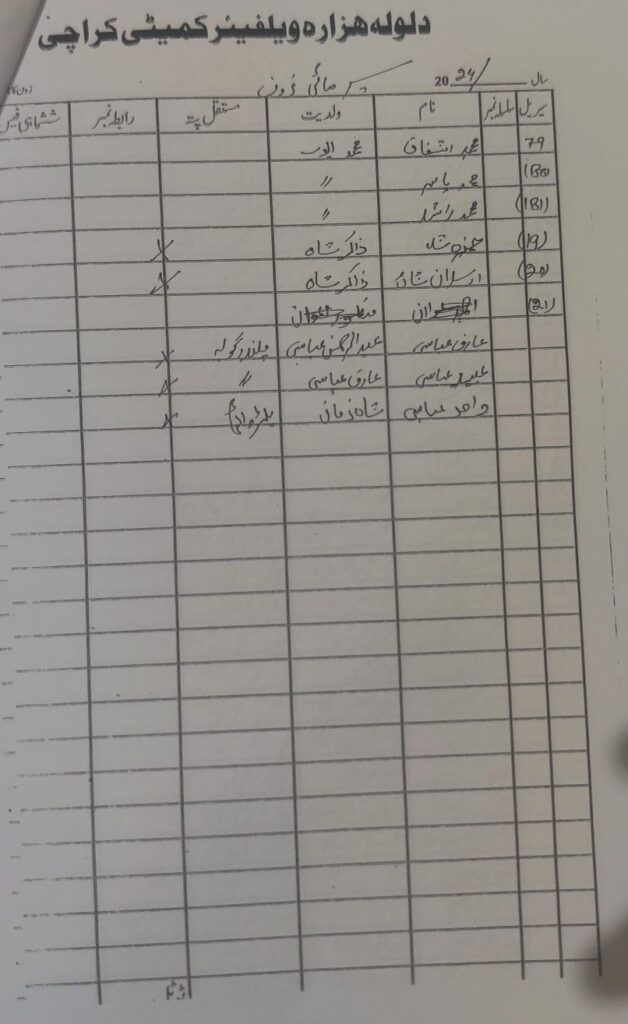 دلولہ ہزارہ ویلفیئر کمیٹی کراچی
سال 2024 زون
سیریل سلسلہ نمبر نام ولدیت مستقل پتہ رابطہ نمبر ششماہی فیس
79 محمد اشفاق محمد ایوب
(180) محمد یاسر 〃
(181) محمد راشد 〃
(19) حمزہ شاہ ذاکر شاہ
(20) ارسلان شاہ ذاکر شاہ
(21)
عارف عباسی عبدالرحمٰن عباسی
عبید عباسی عارف عباسی 〃
واحد عباسی شاہ زمان